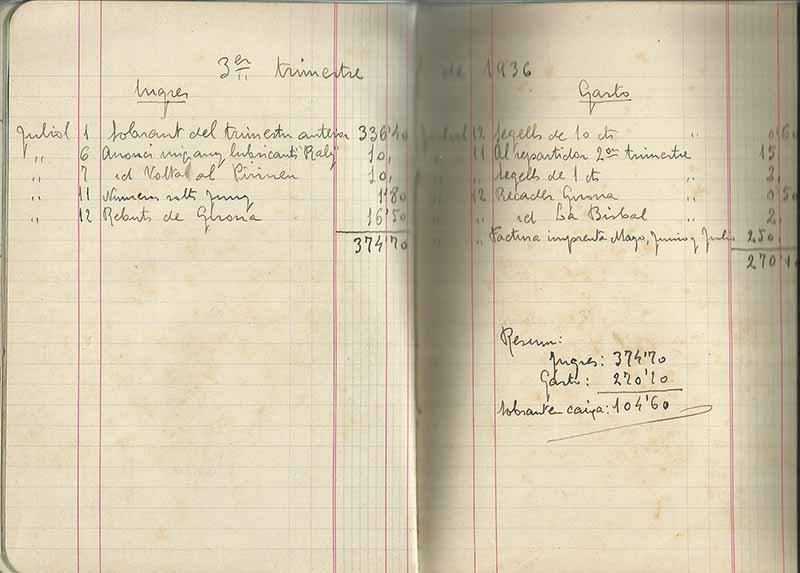 3er trimestre de 1936
Ingres
Juliol 1 Sobrant del trimestre anterior 336'40
" 6 Anunci mitjany lubricants "Raly" 10,
" 7 id Volta al Pirineu 10,
" 11 Numeros solts Juny 1'80
" 12 Rebuts de Girona 16'50
374'70
Gasto
Juliol 12 Segells de 10 cts " 0'60
" 11 Al repartidor 2on trimestre 15,
" " Segells de 1 ct " 2,
" 12 Recader Girona " 0'50
" " id La Bisbal " 2,
" " Factura imprenta Mayo, Junio y Julio 250,
270'10
Resum:
Ingres: 374'70
Gasto: 270'10
Sobrant en caixa: 104'60